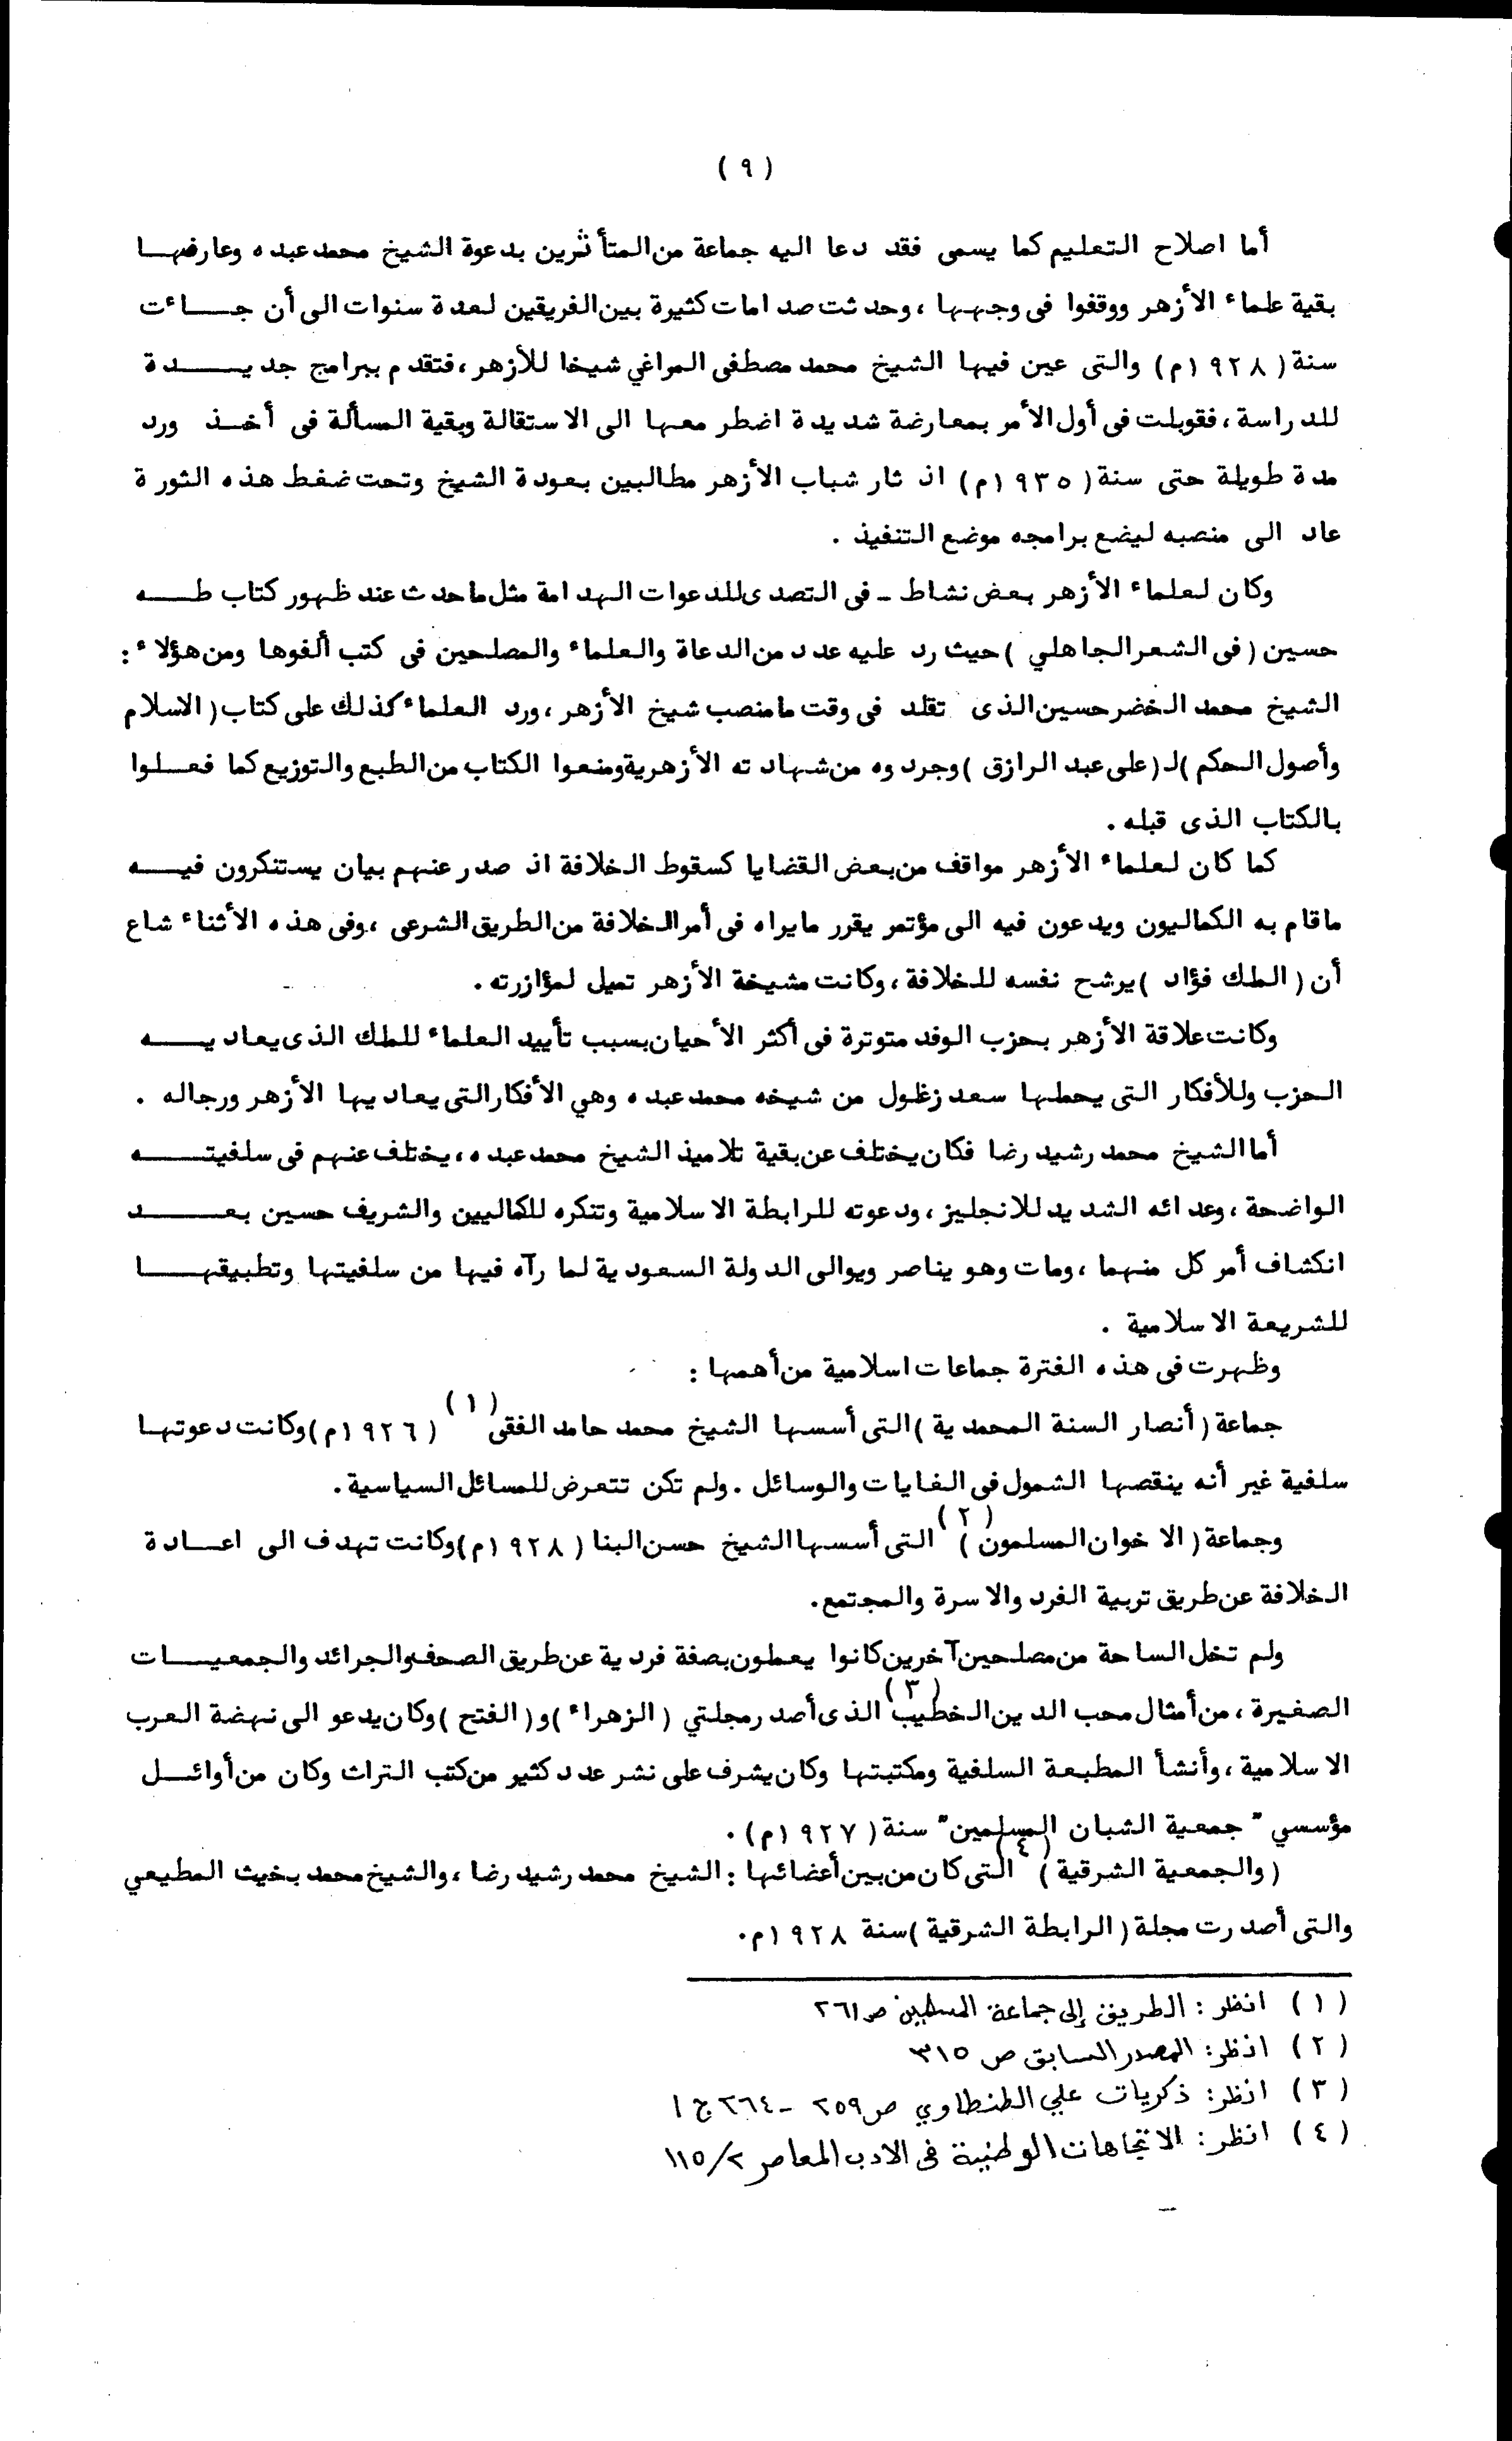 ( ٩ )
أما اصلاح التعليم كما يسمى فقد دعا اليه جماعة من المتأثرين بدعوة الشيخ محمد عبده وعارضها
بقية علماء الأزهر ووقفوا فى وجهها ، وحدثت صدامات كثيرة بين الفريقين لعدة سنوات الى أن جاءت
سنة ( ١٩٢٨م ) والتى عين فيها الشيخ محمد مصطفى المراغي شيخا للأزهر ، فتقدم ببرامج جديدة
للدراسة ، فقوبلت فى أول الأمر بمعارضة شديدة اضطر معها الى الاستقالة وبقية المسألة فى أخذ ورد
مدة طويلة حتى سنة ( ١٩٣٥م ) اذ ثار شباب الأزهر مطالبين بعودة الشيخ وتحت ضغط هذه الثورة
عاد الى منصبه ليضع برامجه موضع التنفيذ .
وكان لعلماء الأزهر بعض نشاط - فى التصدى للدعوات الهدامة مثل ما حدث عند ظهور كتاب طه
حسين ( فى الشعر الجاهلي ) حيث رد عليه عدد من الدعاة والعلماء والمصلحين فى كتب ألفوها ومن هؤلاء :
الشيخ محمد الخضر حسين الذى تقلد فى وقت ما منصب شيخ الأزهر ، ورد العلماء كذلك على كتاب ( الاسلام
وأصول الحكم ) لـ ( على عبد الرازق ) وجردوه من شهادته الأزهرية ومنعوا الكتاب من الطبع والتوزيع كما فعلوا
بالكتاب الذى قبله .
كما كان لعلماء الأزهر مواقف من بعض القضايا كسقوط الخلافة اذ صدر عنهم بيان يستنكرون فيه
ما قام به الكماليون ويدعون فيه الى مؤتمر يقرر ما يراه فى أمر الخلافة من الطريق الشرعى ، وفى هذه الأثناء شاع
أن ( الملك فؤاد ) يرشح نفسه للخلافة ، وكانت مشيخة الأزهر تميل لمؤازرته .
وكانت علاقة الأزهر بحزب الوفد متوترة فى أكثر الأحيان بسبب تأييد العلماء للملك الذى يعاديه
الحزب وللأفكار التى يحملها سعد زغلول من شيخه محمد عبده وهي الأفكار التى يعاديها الأزهر ورجاله .
أما الشيخ محمد رشيد رضا فكان يختلف عن بقية تلاميذ الشيخ محمد عبده ، يختلف عنهم فى سلفيته
الواضحة ، وعدائه الشديد للانجليز ، ودعوته للرابطة الاسلامية وتنكره للكماليين والشريف حسين بعد
انكشاف أمر كل منهما ، ومات وهو يناصر ويوالى الدولة السعودية لما رآه فيها من سلفيتها وتطبيقها
للشريعة الاسلامية .
وظهرت فى هذه الفترة جماعات اسلامية من أهمها :
جماعة ( أنصار السنة المحمدية ) التى أسسها الشيخ محمد حامد الفقى (١) ( ١٩٢٦م ) وكانت دعوتها
سلفية غير أنه ينقصها الشمول فى الغايات والوسائل . ولم تكن تتعرض للمسائل السياسية .
وجماعة ( الاخوان المسلمون ) (٢) التى أسسها الشيخ حسن البنا ( ١٩٢٨م ) وكانت تهدف الى اعادة
الخلافة عن طريق تربية الفرد والاسرة والمجتمع .
ولم تخل الساحة من مصلحين آخرين كانوا يعملون بصفة فردية عن طريق الصحف والجرائد والجمعيات
الصغيرة ، من أمثال محب الدين الخطيب (٣) الذى أصدر مجلتي ( الزهراء ) و ( الفتح ) وكان يدعو الى نهضة العرب
الاسلامية ، وأنشأ المطبعة السلفية ومكتبتها وكان يشرف على نشر عدد كثير من كتب التراث وكان من أوائل
مؤسسي " جمعية الشبان المسلمين " سنة ( ١٩٢٧م ) .
( والجمعية الشرقية ) (٤) التى كان من بين أعضائها : الشيخ محمد رشيد رضا ، والشيخ محمد بخيث المطيعي
والتى أصدرت مجلة ( الرابطة الشرقية ) سنة ١٩٢٨م .
( ١ ) انظر : الطريق إلى جماعة المسلمين ص ٢٦١
( ٢ ) انظر : المصدر السابق ص ٣١٥
( ٣ ) انظر : ذكريات علي الطنطاوي ص ٢٥٩ - ٢٦٤ ج ١
( ٤ ) انظر : الاتجاهات الوطنية فى الادب المعاصر ٢/١١٥